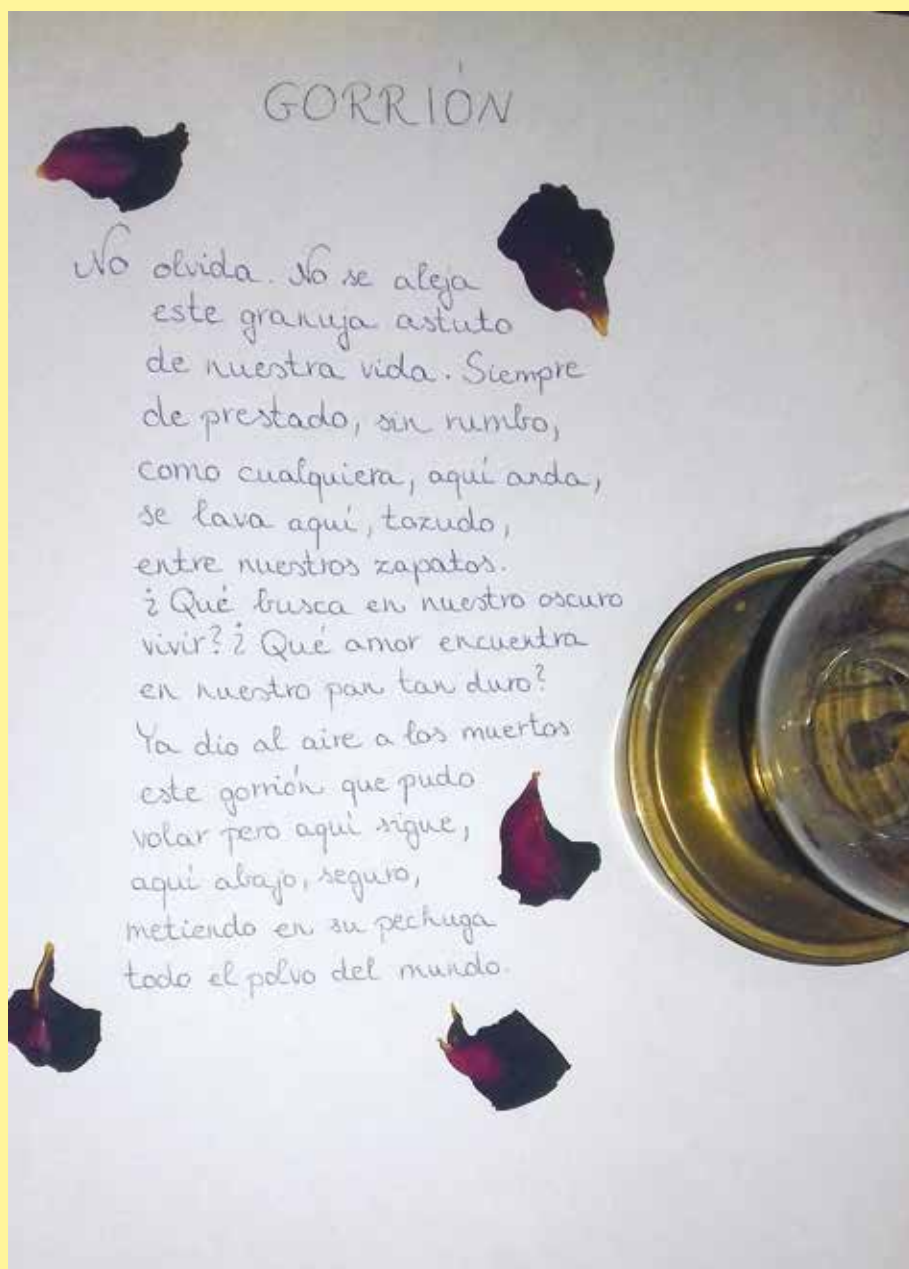 GORRIÓN
No olvida. No se aleja
este granuja astuto
de nuestra vida. Siempre
de prestado, sin rumbo,
como cualquiera, aquí anda,
se lava aquí, tozudo,
entre nuestros zapatos.
¿Qué busca en nuestro oscuro
vivir? ¿Qué amor encuentra
en nuestro pan tan duro?
Ya dio al aire a los muertos
este gorrión que pudo
volar pero aquí sigue,
aquí abajo, seguro,
metiendo en su pechuga
todo el polvo del mundo.